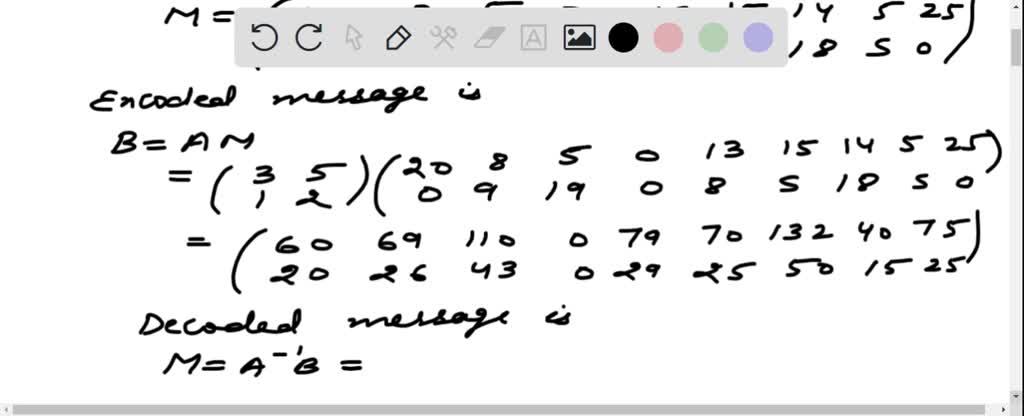 M = ( 14 5 25 )
18 5 0
Encoded message is
B = A M
= ( 3 5 ) ( 20 8 5 0 13 15 14 5 25 )
1 2 0 9 19 0 8 5 18 5 0
= ( 60 69 110 0 79 70 132 40 75 )
20 26 43 0 29 25 50 15 25
Decoded message is
M = A⁻¹B =